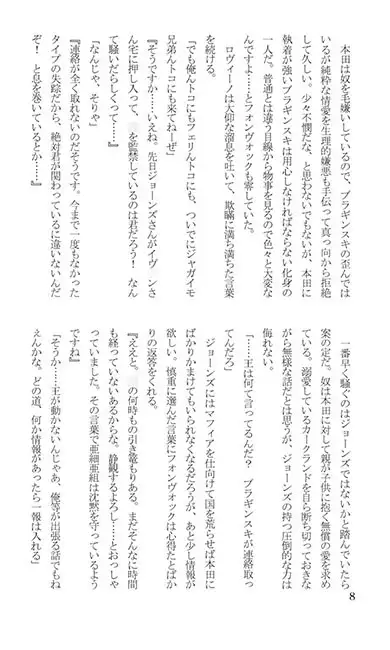 本田は奴を毛嫌いしているので、ブラギンスキの歪んでは
いるが純粋な情愛を生理的嫌悪も手伝って真っ向から拒絶
して久しい。少々不憫だな、と思わないでもないが、本田に
執着が強いブラギンスキは用心しなければならない化身の
一人だ。普通とは違う目線から物事を見るので色々と大変な
んですよ……とフォンヴォックも零していた。
ロヴィーノは大仰な溜息を吐いて、欺瞞に満ち満ちた言葉
を続ける。
「でも俺んトコにもフェリんトコにも、ついでにジャガイモ
兄弟んトコにも来てねーぜ」
『そうですか……いえね。先日ジョーンズさんがイヴ ンさ
ん宅に押し入って、 を監禁しているのは君だろう！ なん
て騒いだらしくって……』
「なんじゃ、そりゃ」
『連絡が全く取れないのだそうです。今まで一度もなかった
タイプの失踪だから、絶対君が関わっているに違いないんだ
ぞ！ と息を巻いているとか……』
一番早く騒ぐのはジョーンズではないかと踏んでいたら
案の定だ。奴は本田に対して親が子供に抱く無償の愛を求め
ている。溺愛しているカークランドを自ら断ち切っておきな
がら無様な話だとは思うが、ジョーンズの持つ圧倒的な力は
侮れない。
「……王は何て言ってるんだ？ ブラギンスキが連絡取っ
てんだろ」
ジョーンズにはマフィアを仕向けて国を荒らせば本田に
ばかりかまけてもいられなくなるだろうが、あと少し情報が
欲しい。慎重に選んだ言葉にフォンヴォックは心得たとばか
りの返答をくれる。
『ええと。 の何時もの引き篭もりある。まだそんなに時間
も経っていないあるからな。静観するよろし……とおっしゃ
っていました。その言葉で亜細亜組は沈黙を守っているよう
ですね』
「そうか……王が動かないんじゃあ、俺等が出張る話でもね
ぇんかな。どの道、何か情報があったら一報は入れる」
8